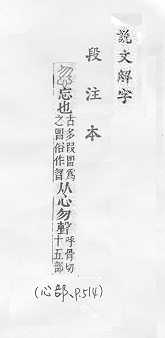 説文解字
段注本
忽 忘也 古多叚曶爲之曶俗作 从心勿聲 呼骨切十五部
(心部、p.514)